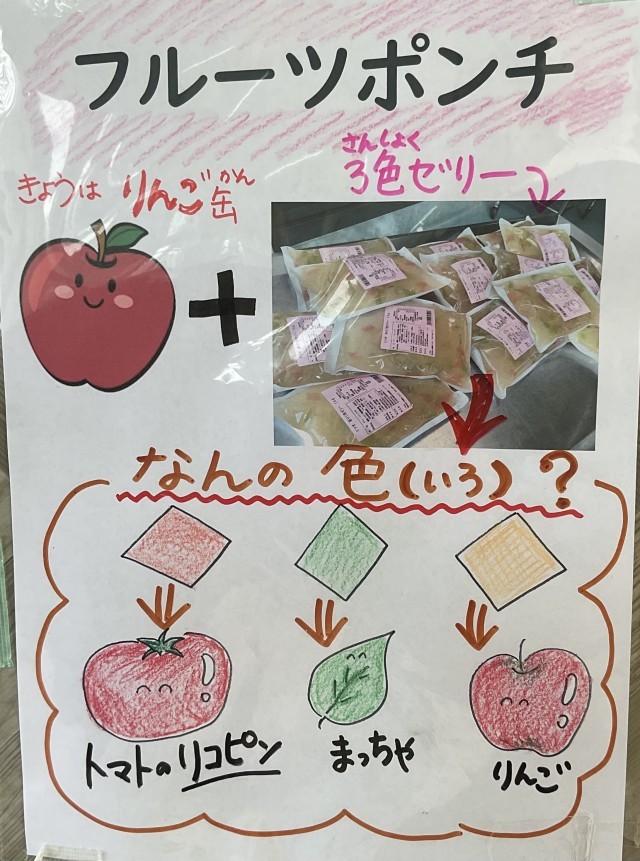 フルーツポンチ
さんしょく
3色ゼリー
きょうは りんご缶
かん
なんの 色(いろ)?
トマトのリコピン
まっちゃ
りんご